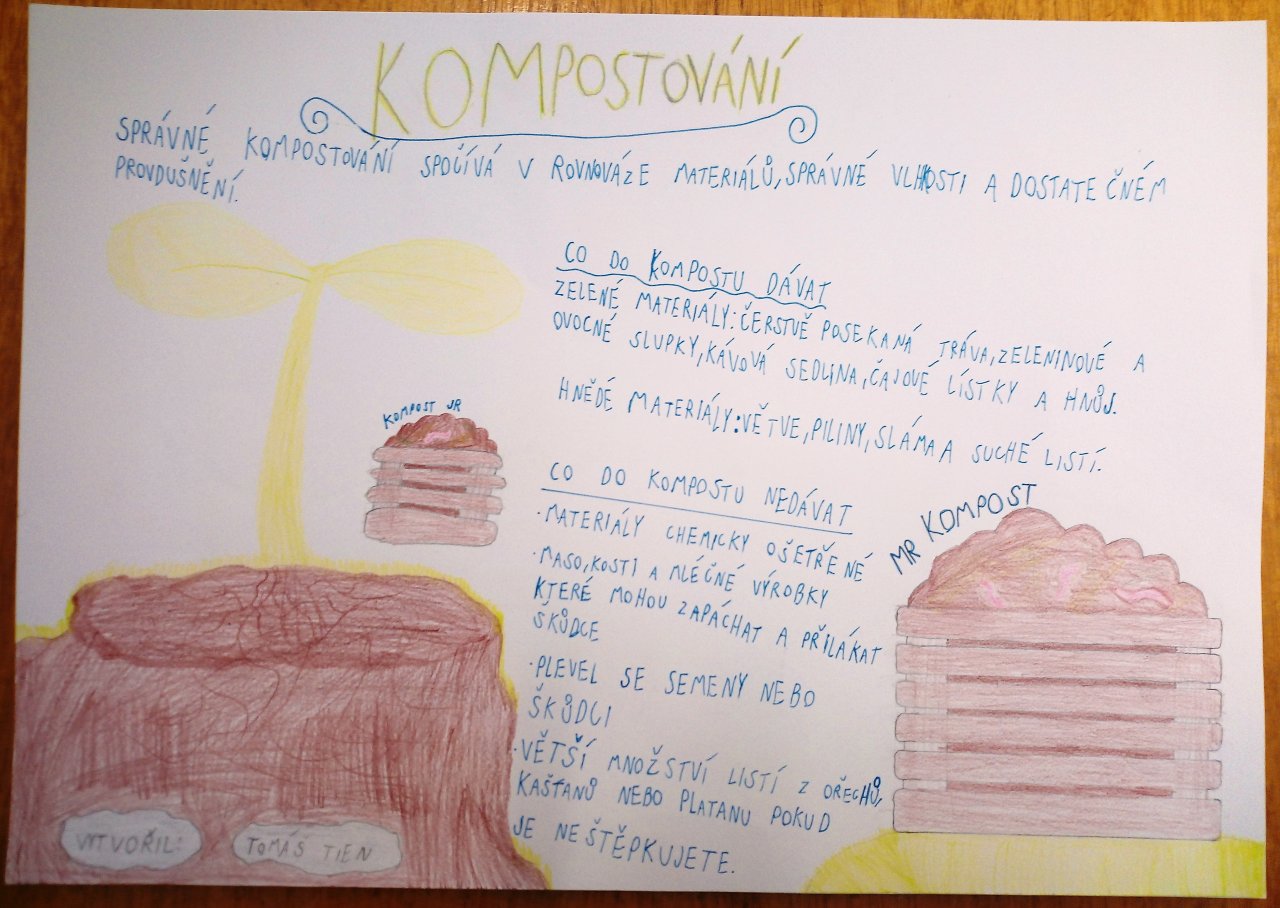 KOMPOSTOVÁNÍ
SPRÁVNÉ KOMPOSTOVÁNÍ SPOČÍVÁ V ROVNOVÁZE MATERIÁLŮ, SPRÁVNÉ VLHKOSTI A DOSTATEČNÉM
PROVDUŠNĚNÍ.
CO DO KOMPOSTU DÁVAT
ZELENÉ MATERIÁLY: ČERSTVĚ POSEKANÁ TRÁVA, ZELENINOVÉ A
OVOCNÉ SLUPKY, KÁVOVÁ SEDLINA, ČAJOVÉ LÍSTKY A HNŮJ.
HNĚDÉ MATERIÁLY: VĚTVE, PILINY, SLÁMA A SUCHÉ LISTÍ.
KOMPOST JR
CO DO KOMPOSTU NEDÁVAT
·MATERIÁLY CHEMICKY OŠETŘENÉ
·MASO, KOSTI A MLÉČNÉ VÝROBKY
KTERÉ MOHOU ZAPÁCHAT A PŘILÁKAT
ŠKŮDCE
·PLEVEL SE SEMENY NEBO
ŠKŮDCI
·VĚTŠÍ MNOŽSTVÍ LISTÍ Z OŘECHŮ,
KAŠTANŮ NEBO PLATANU POKUD
JE NEŠTĚPKUJETE.
MR KOMPOST
VYTVOŘIL:
TOMÁŠ TIEN